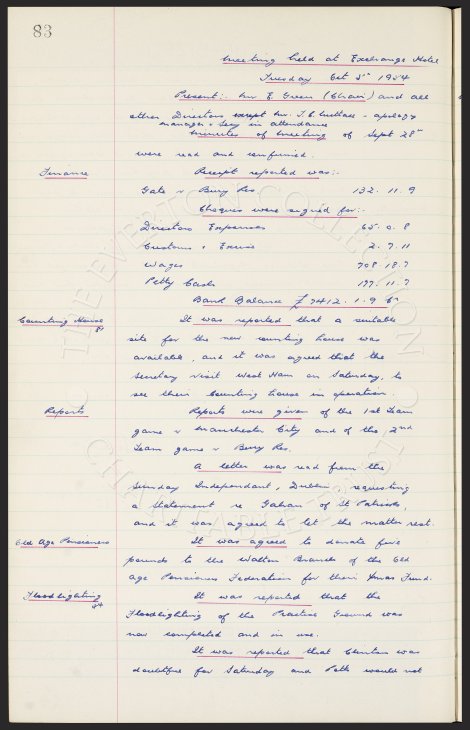 83
Meeting held at Exchange Hotel
Tuesday Oct 5th 1954
Present:- Mr E. Green (Chair) and all
other Directors except Mr. T. C. Nuttall - apology
Manager & Secy in attendance
Minutes of Meeting of Sept 28th
were read and confirmed.
Finance
Receipt reported was:-
Gate v Bury Res 132. 11. 9
Cheques were signed for:-
Directors Expenses 65. 0. 8
Customs & Excise 2. 7. 11
Wages 708. 18. 7
Petty Cash 177. 11. 7
Bank Balance £7412. 1. 9
Counting House
It was reported that a suitable
site for the new counting house was
available, and it was agreed that the
Secretary visit West Ham on Saturday, to
see their Counting House in operation.
Reports
Reports were given of the 1st Team
game v Manchester City and of the 2nd
Team game v Bury Res.
A letter was read from the
Sunday Independant, Dublin, requesting
a statement re of St Patricks,
and it was agreed to let the matter rest.
Old Age Pensioners
It was agreed to donate five
pounds to the Walton Branch of the Old
Age Pensioners Federation for their Xmas Fund.
Floodlighting
It was reported that the
Floodlighting of the Practice Ground was
now completed and in use.
It was reported that Clinton was
doubtful for Saturday and Potts would not
THE EVERTON COLLECTION
CHARITABLE TRUST